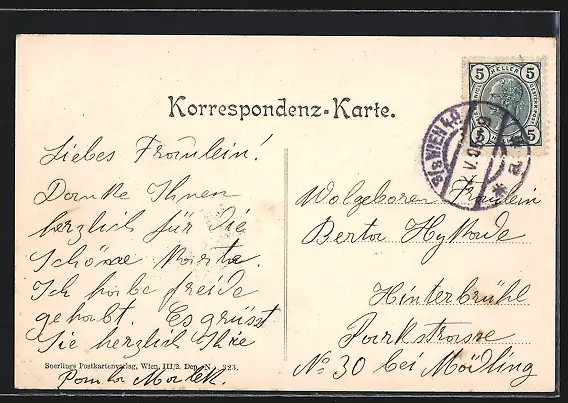 Korrespondenz-Karte.
5 HELLER 5
5 5
8/8 WIEN 40
Liebes Fraulein!
Danke Ihnen
herzlich für die
Schöne Karte.
Ich habe freide
gehabt. Es grüsst
Sie herzlich Ihre
Wolgeboren Fraulein
Berta
Hinterbrühl
Parkstrasse
No 30 bei Mödling
Sperlings Postkartenverlag, Wien, III/2. Dep. N. 323.